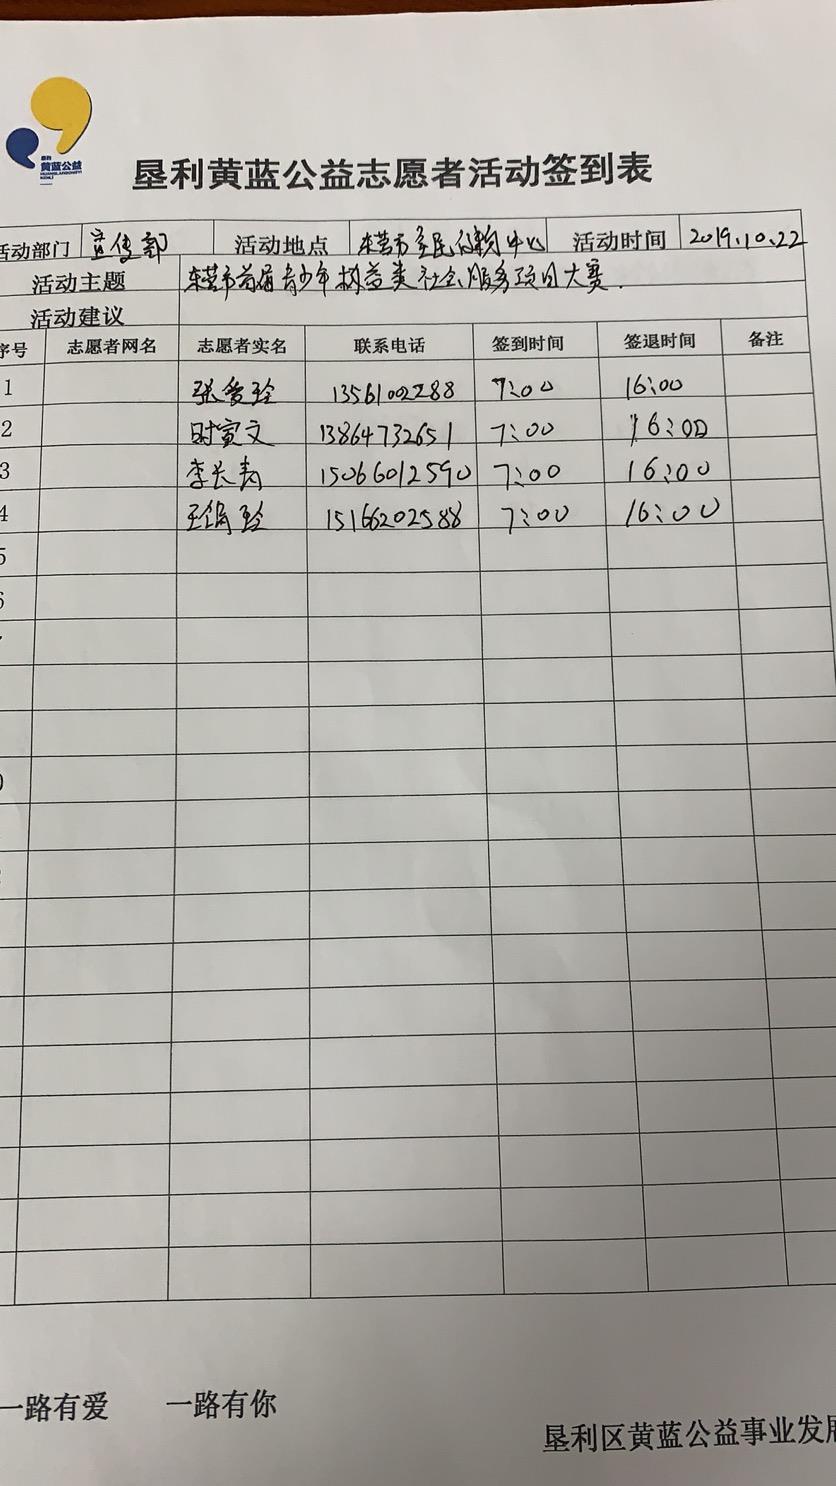 垦利
黄蓝公益
HUANGLANGONGYI
KENLI
垦利黄蓝公益志愿者活动签到表
活动部门 宣传部 活动地点 东营市全民健身中心 活动时间 2019.10.22
活动主题 东营市首届青少年 公益类社会服务项目大赛.
活动建议
序号 志愿者网名 志愿者实名 联系电话 签到时间 签退时间 备注
1 张爱玲 13561002288 7:00 16:00
2 时宝文 13864732651 7:00 16:00
3 李长青 15066012590 7:00 16:00
4 王绢玲 15166202588 7:00 16:00
5
6
一路有爱 一路有你
垦利区黄蓝公益事业发展